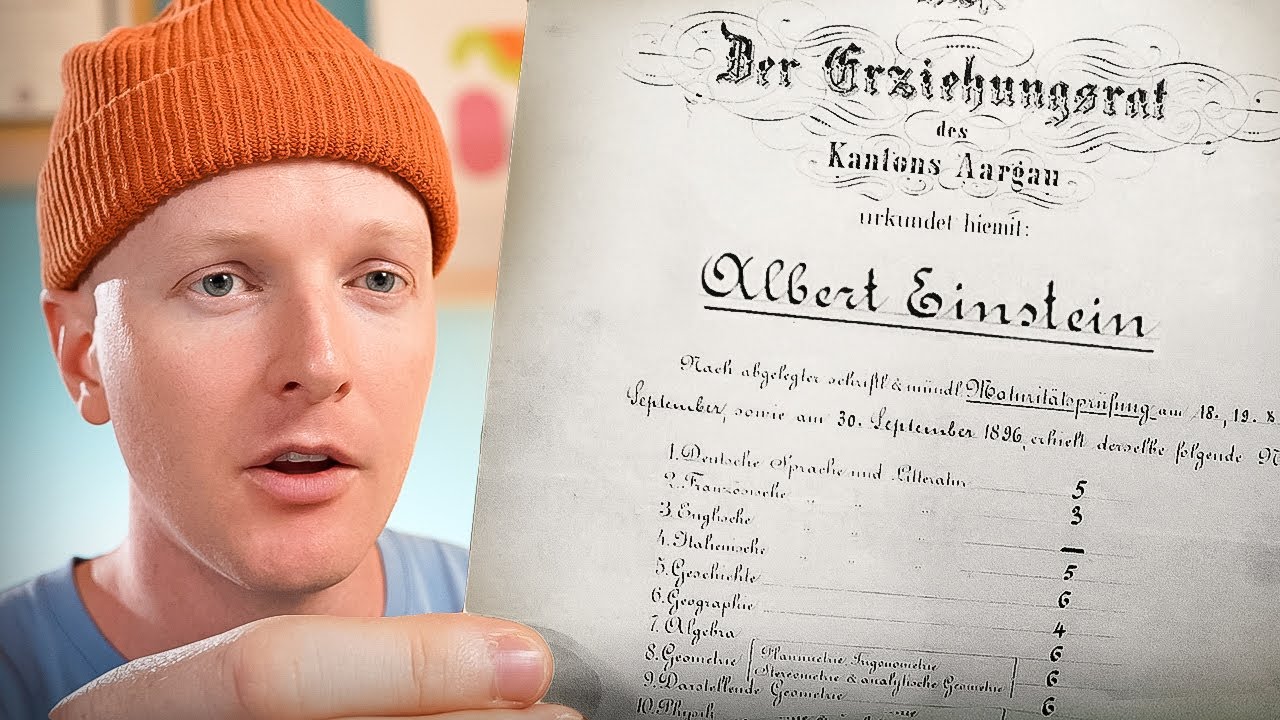 Der Erziehungsrat
des
Kantons Aargau
urkundet hiemit:
Albert Einstein
Nach abgelegter schriftl & mündl Maturitätsprüfung am 18., 19. &
September, sowie am 30. September 1896, erhielt derselbe folgende
1. Deutsche Sprache und Litteratur 5
2. Französische " " " 3
3. Englische " " " —
4. Italienische " " " 5
5. Geschichte 6
6. Geographie 4
7. Algebra 6
8. Geometrie Planimetrie Trigonometrie
Stereometrie & analytische Geometrie 6
9. Darstellende Geometrie 6
10. Physik